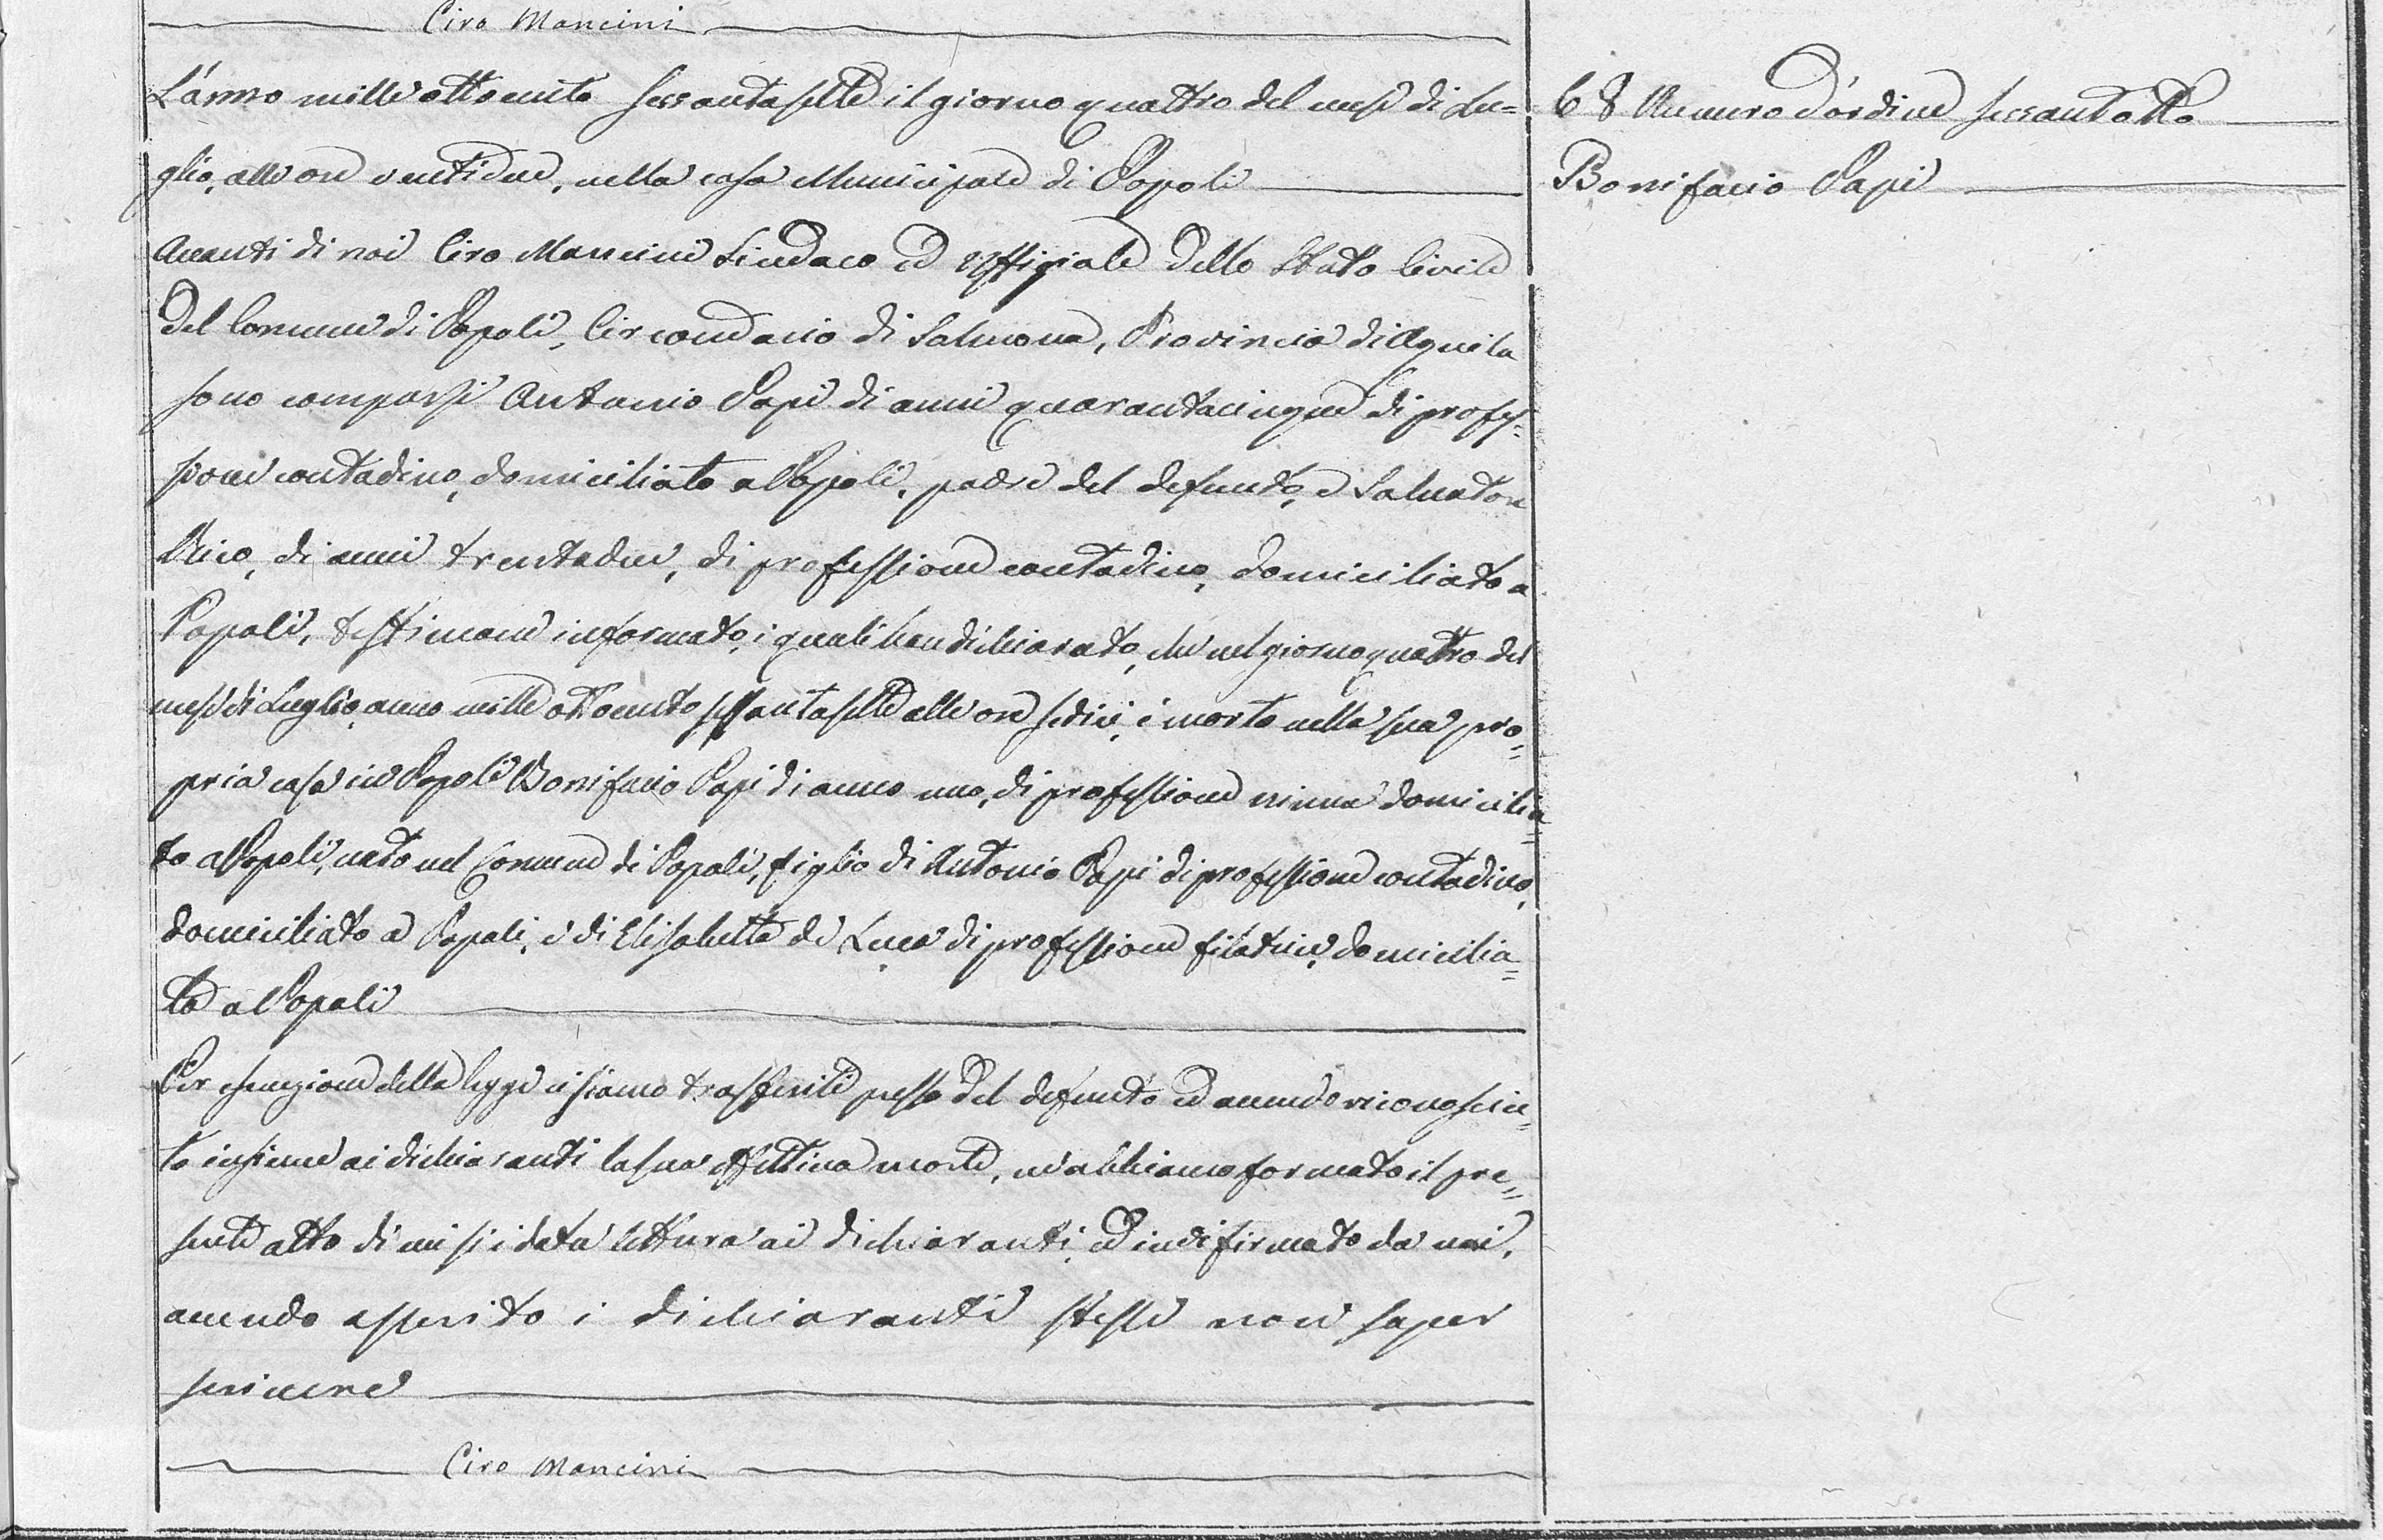 Ciro Mancini
L'anno mille ottocento sessantasette il giorno quattro del mese di Lu=
glio, alle ore ventidue, nella casa Municipale di Popoli
Avanti di noi Ciro Mancini Sindaco ed Uffiziale dello Stato Civile
del Comune di Popoli, Circondario di Salmona, Provincia di Aquila
sono comparsi Antonio Papi di anni quarantacinque di profes=
sione contadino, domiciliato a Popoli, padre del defunto, e Salvatore
di anni trentadue, di professione contadino, domiciliato a
Popoli, testimone informato, i quali han dichiarato, che nel giorno quattro del
mese di Luglio, anno mille ottocento sessantasette alle ore sedici, è morto nella sua pro=
pria casa in Popoli Bonifacio Papi di anno uno, di professione niuna domicilia=
to a Popoli, nato nel Comune di Popoli, figlio di Antonio Papi di professione contadino,
domiciliato a Popoli, e di Elisabetta de Luca di professione filatrice, domicilia=
ta a Popoli
Per esecuzione della legge ci siamo trasferiti presso del defunto ed avendo riconosciu=
to insieme ai dichiaranti la sua effettiva morte, ne abbiamo formato il pre=
sente atto di cui si è data lettura ai dichiaranti, ed indi firmato da noi,
avendo asserito i dichiaranti stessi non saper
scrivere
Ciro Mancini
68 Numero d'ordine sessantotto
Bonifacio Papi